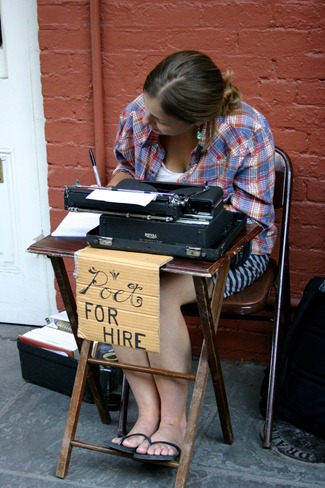 ROYAL
Poet
FOR
HIRE